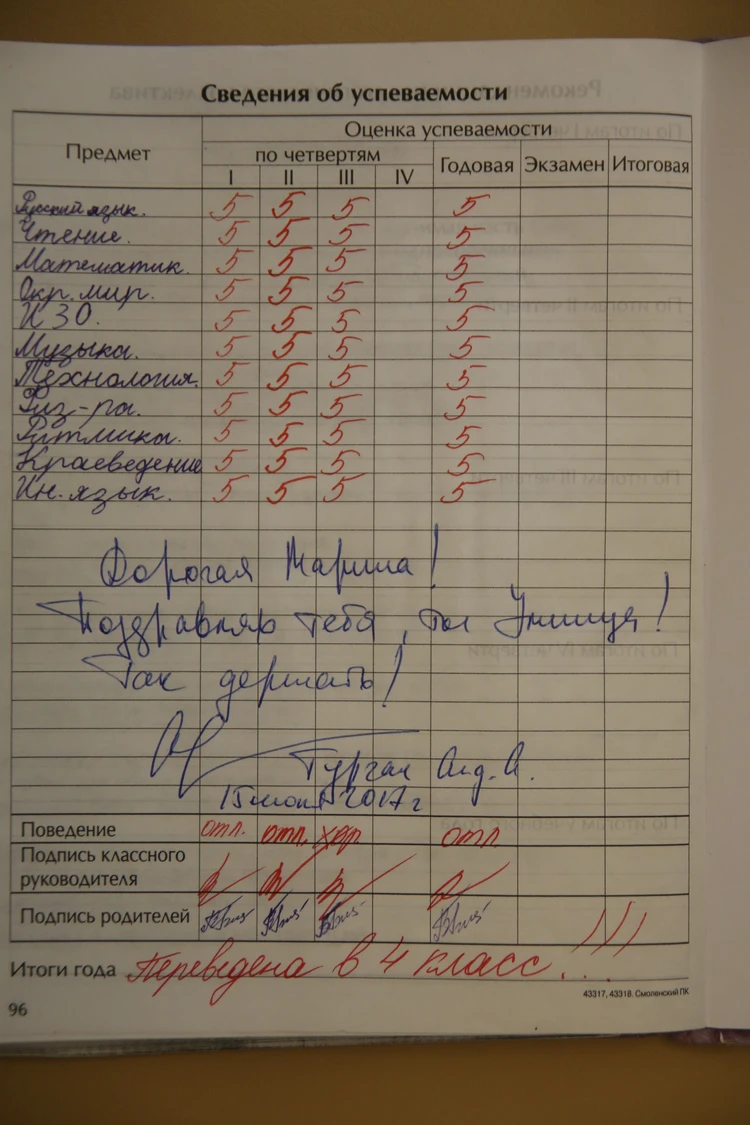 Сведения об успеваемости
Предмет Оценка успеваемости
по четвертям Годовая Экзамен Итоговая
I II III IV
Русский язык. 5 5 5 5
Чтение. 5 5 5 5
Математик. 5 5 5 5
Окр. мир. 5 5 5 5
ИЗО. 5 5 5 5
Музыка. 5 5 5 5
Технология. 5 5 5 5
Физ-ра. 5 5 5 5
Ритмика. 5 5 5 5
Краеведение 5 5 5 5
Ин. язык. 5 5 5 5
Дорогая Марина!
Поздравляю тебя, ты Умница!
Так держать!
2017 г
Поведение отл. отл. хор. отл.
Подпись классного
руководителя
Подпись родителей
Итоги года Переведена в 4 класс...!!!
43317, 43318. Смоленский ПК
96